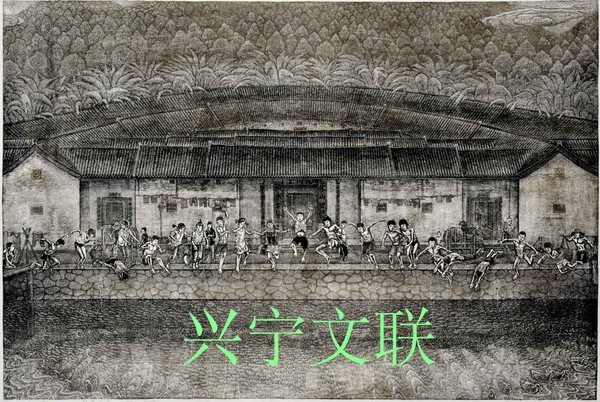 兴宁文联